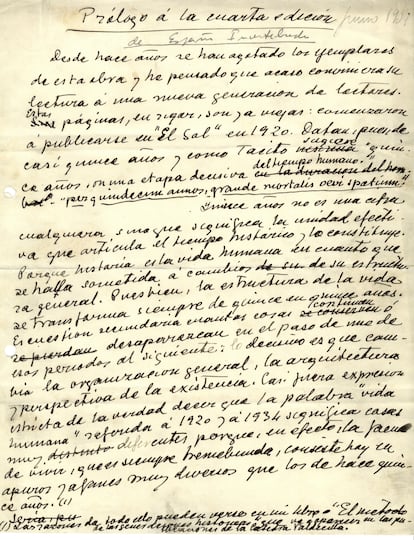 Prólogo á la cuarta edición
junio 1934
de España Invertebrada
Desde hace años se han agotado los ejemplares
de esta obra y he pensado que acaso conviniera su
lectura a una nueva generación de lectores.
Estas páginas, en rigor, son ya viejas: comenzaron
a publicarse en "El Sol" en 1920. Datan, pues, de
casi quince años y como Tacito sugiere "quin-
ce años, son una etapa decisiva en la duración del hom-
del tiempo humano."
bre" - "per quindecim annos, grande mortalis aevi spatium."
Quince años no es una cifra
cualquiera sino que significa la unidad efecti-
va que articula el tiempo histórico y lo constituye.
Porque historia es la vida humana en cuanto que
se halla sometida a cambios de su de su estructu-
ra general. Pues bien, la estructura de la vida
se transforma siempre de quince en quince años.
Es cuestion secundaria cuantas cosas continuan ó
se conserven
se pierdan desaparezcan en el paso de uno de
esos periodos al siguiente: lo decisivo es que cam-
bia la organizacion general, la arquitectura
y perspectiva de la existencia. Casi fuera expresion
estricta de la verdad decir que la palabra "vida
humana" referida á 1920 y á 1934 significa cosas
muy distinto diferentes, porque, en efecto, la faena
de vivir, que es siempre tremebunda, consiste hoy en
apuros y afanes muy diversos que los de hace quin-
ce años. (1)
(1) Las razones de todo ello pueden verse en mi libro "El método
de las generaciones históricas" que va á aparecer en las pu-
blicaciones de la Cátedra Valdecilla.